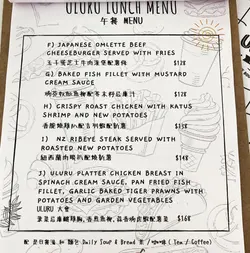 ULURU LUNCH MENU
午餐 MENU
F) JAPANESE OMLETTE BEEF
CHEESEBURGER SERVED WITH FRIES
$128
G) BAKED FISH FILLET WITH MUSTARD
CREAM SAUCE
$128
H) CRISPY ROAST CHICKEN WITH KATUS
SHRIMP AND NEW POTATOES
$138
I) NZ RIBEYE STEAK SERVED WITH
ROASTED NEW POTATOES
$148
J) ULURU PLATTER CHICKEN BREAST IN
SPINACH CREAM SAUCE, PAN FRIED FISH
FILLET, GARLIC BAKED TIGER PRAWNS WITH
POTATOES AND GARDEN VEGETABLES
ULURU 大會
$168
配 是日餐湯 和 麵包 Daily Soup & Bread 茶 / 咖啡 (Tea / Coffee)